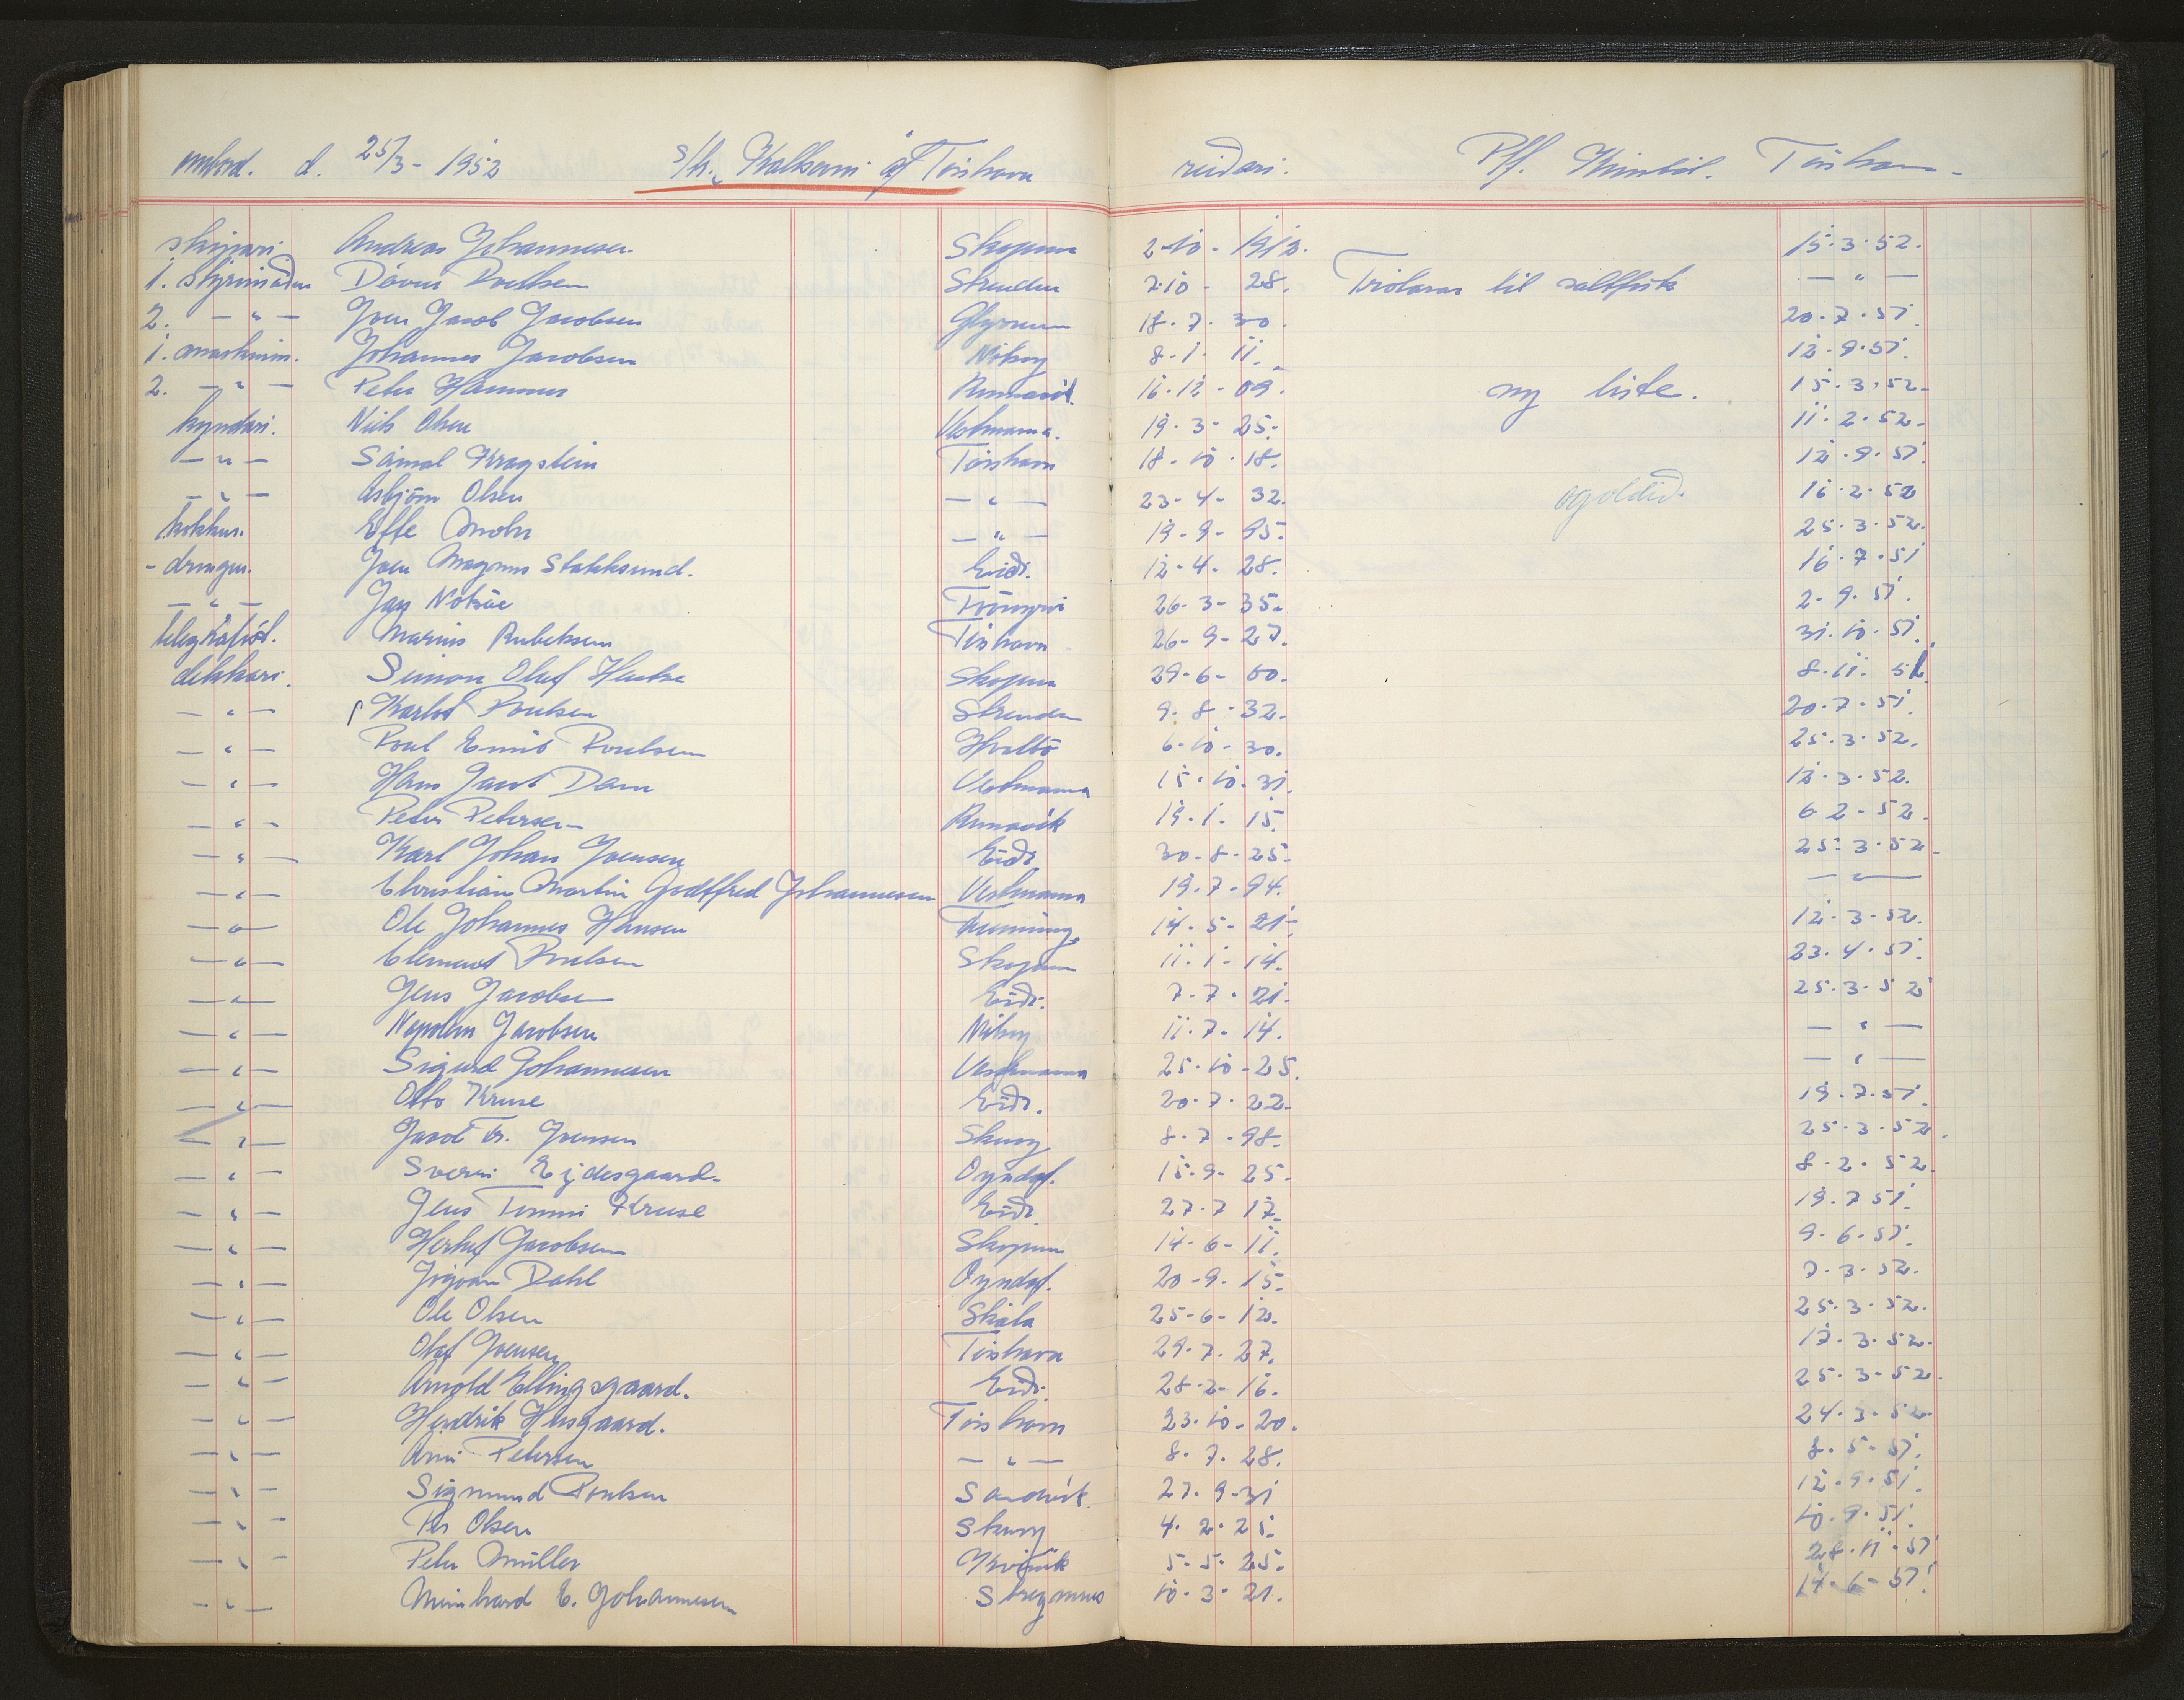 ombord. d. 25/3 - 1952 s/t. Tórshavn reidari. P/f. Tórshavn.
skipari. Andreas Johannesen. Skopun 2-10-1913. 15.3.52.
1. Dávur Poulsen Strendur 7.10-28. Trolarar til saltfisk — " —
2. — " — Joen Jacob Jacobsen 18.7.30. 20.7.51.
1. maskinm. Johannes Jacobsen Nólsoy 8.1.11. 12.9.51.
2. — " — Peter Hammer Runavík 16.12-09. ny liste. 15.3.52.
kyndari. Niels Olsen Vestmanna. 19.3-25. 11.2.52.
— " — Sámal Kragstein Tórshavn 18.10.18. 12.9.51.
— " — Asbjørn Olsen — " — 23-4-32. ógoldið. 16.2.52
kokkur. Effe Mohr — " — 19-9-95. 25.3.52.
- drongur. Joen Magnus Stakksund. Eiði. 12-4-28. 16.7.51
— " — Jany Nolsøe 26-3-35. 2.9.51.
telegrafist. Marius Rubeksen Tórshavn 26-9-27. 31.10.51.
dekkari. Simon Oluf Hentze Skopun 29-6-00. 8.11.51.
— " — Karlot Poulsen Strendur 9.8.32. 20.7.51.
— " — Poul Emil Poulsen Hvalbø 6.10.30. 25.3.52.
— " — Hans Jacob Dam Vestmanna 15.10.31. 12.3.52.
— " — Peter Petersen Runavík 19.1.15. 6.2-52.
— " — Karl Johan Joensen Eiði. 30.8.25. 25.3.52.
— " — Christian Martin Godtfred Johannesen Vestmanna 19.7.94. — " —
— " — Ole Johannes Hansen Funning. 14.5-21. 12.3.52.
— " — Clement Poulsen Skopun 11.1-14. 23.4.51.
— " — Jens Jacobsen Eiði. 7.7.21. 25.3.52
— " — Napoleon Jacobsen Nólsoy 11.7.14. — " —
— " — Sigurd Johannesen Vestmanna 25.10-25. — " —
— " — Otto Kruse Eiði. 20.7.22. 19.7.51.
— " — Jacob Fr. Joensen Skuvoy 8.7-98. 25.3.52.
— " — Sverri Eijdesgaard. Oyndaf. 15.9.25. 8.2.52.
— " — Jens Tommi Kruse Eiði. 27.7 17. 19.7 51.
— " — Herluf Jacobsen Skopun 14-6-11. 9.6.51.
— " — Jógvan Dahl Oyndaf. 20-9.15. 7.3.52.
— " — Ole Olsen Skála 25-6-12. 25.3.52.
— " — Olaf Joensen Tórshavn 29.7.27. 17.3.52.
— " — Arnold Ellingsgaard. Eiði. 28.2-16. 25.3-52.
— " — Hendrik Husgaard. Tórshavn 23.10-20. 24.3.52
— " — Arni Petersen — " — 8.7.28. 8.5-51.
— " — Sigmund Poulsen Sandvík. 27.9-31 12.9.51.
— " — Per Olsen Skuvoy 4.2.25. 10.9.51.
— " — Peter Müller Kvívík 5-5-25. 28.11.51
— " — Meinhard E. Johannesen Streymnes 10.3-21. 14.6-51.